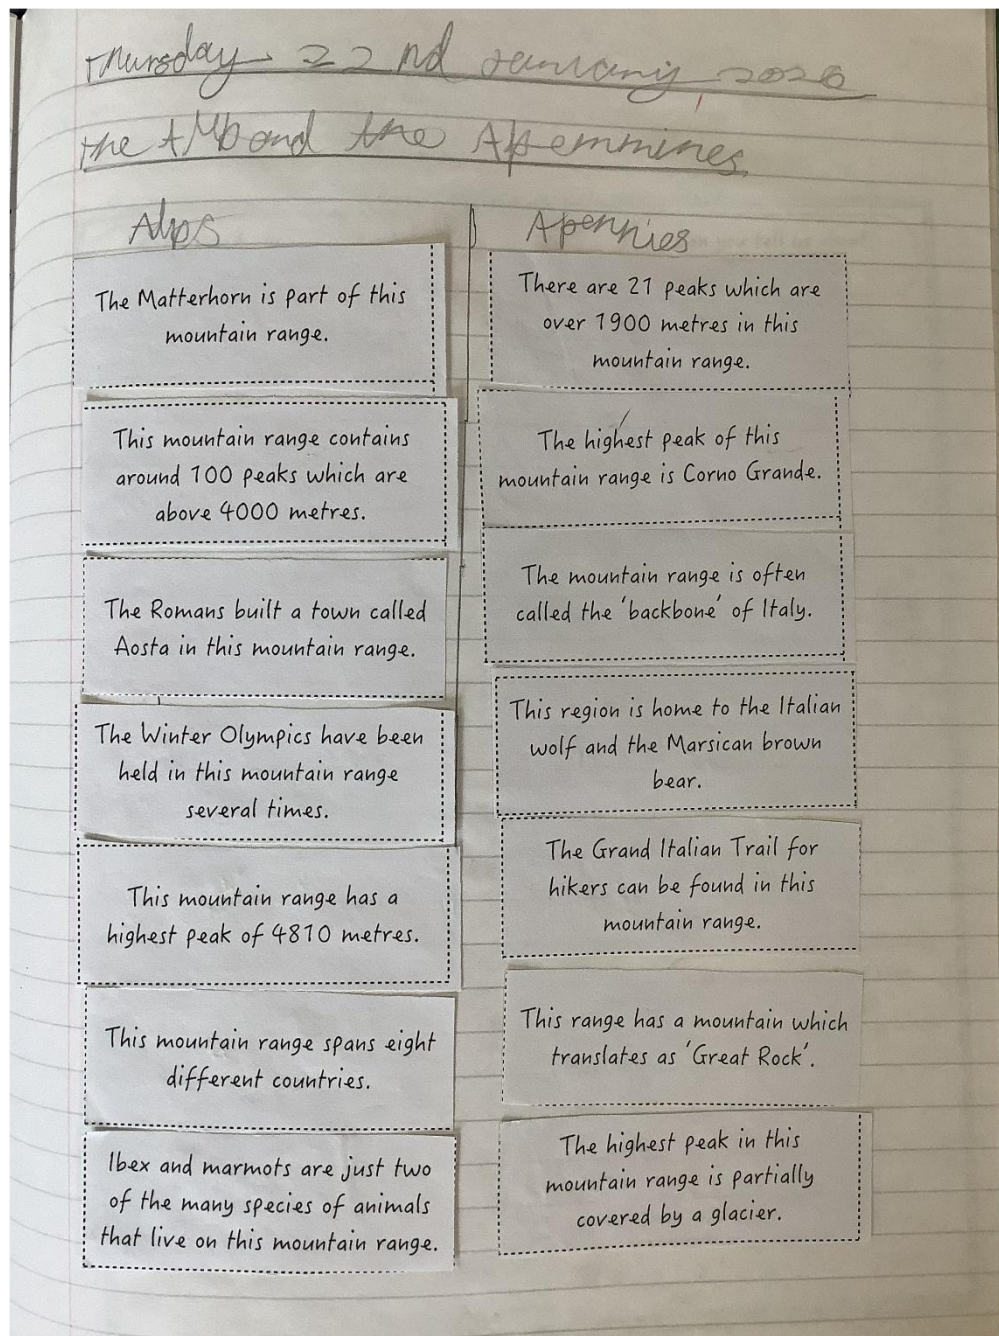 Thursday 22nd January, 2026
the Alps and the Apemmines.
Alps
The Matterhorn is part of this
mountain range.
This mountain range contains
around 100 peaks which are
above 4000 metres.
The Romans built a town called
Aosta in this mountain range.
The Winter Olympics have been
held in this mountain range
several times.
This mountain range has a
highest peak of 4810 metres.
This mountain range spans eight
different countries.
Ibex and marmots are just two
of the many species of animals
that live on this mountain range.
Apennies
There are 21 peaks which are
over 1900 metres in this
mountain range.
The highest peak of this
mountain range is Corno Grande.
The mountain range is often
called the 'backbone' of Italy.
This region is home to the Italian
wolf and the Marsican brown
bear.
The Grand Italian Trail for
hikers can be found in this
mountain range.
This range has a mountain which
translates as 'Great Rock'.
The highest peak in this
mountain range is partially
covered by a glacier.